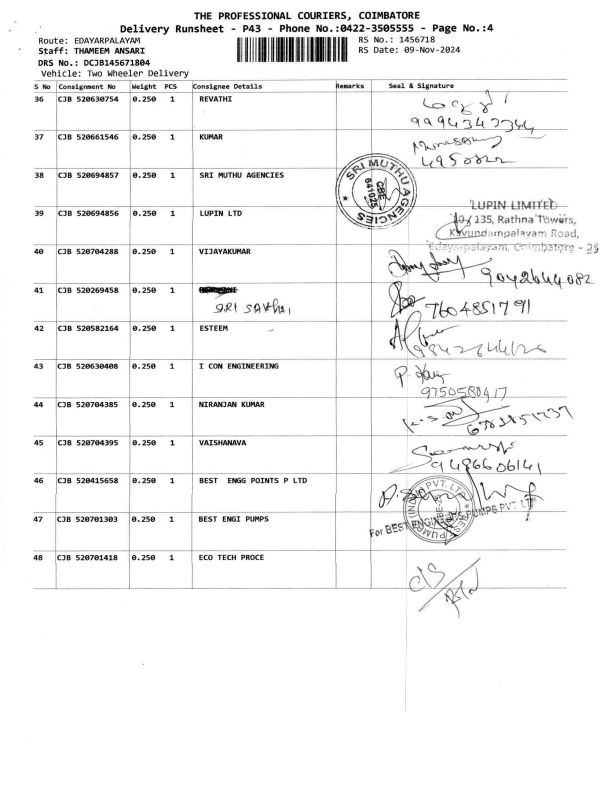 THE PROFESSIONAL COURIERS, COIMBATORE
Delivery Runsheet - P43 - Phone No.:0422-3505555 - Page No.:4
Route: EDAYARPALAYAM
RS No.: 1456718
Staff: THAMEEM ANSARI
RS Date: 09-Nov-2024
DRS No.: DCJB145671804
Vehicle: Two Wheeler Delivery
S No Consignment No Weight PCS Consignee Details Remarks Seal & Signature
36 CJB 520630754 0.250 1 REVATHI
37 CJB 520661546 0.250 1 KUMAR
38 CJB 520694857 0.250 1 SRI MUTHU AGENCIES
SRI MUTHU AGENCIES
CBE
641025
39 CJB 520694856 0.250 1 LUPIN LTD
LUPIN LIMITED
135, Rathna Towers,
Kavundampalayam Road,
Edayarpalayam, Coimbatore - 25
40 CJB 520704288 0.250 1 VIJAYAKUMAR
9042644082
41 CJB 520269458 0.250 1
SRI SAKHI
7604851791
42 CJB 520582164 0.250 1 ESTEEM
43 CJB 520630408 0.250 1 I CON ENGINEERING
9750580417
44 CJB 520704385 0.250 1 NIRANJAN KUMAR
45 CJB 520704395 0.250 1 VAISHANAVA
9486606141
46 CJB 520415658 0.250 1 BEST ENGG POINTS P LTD
47 CJB 520701303 0.250 1 BEST ENGI PUMPS
For BEST ENGINEERS PUMPS PVT. LTD
48 CJB 520701418 0.250 1 ECO TECH PROCE
C/S